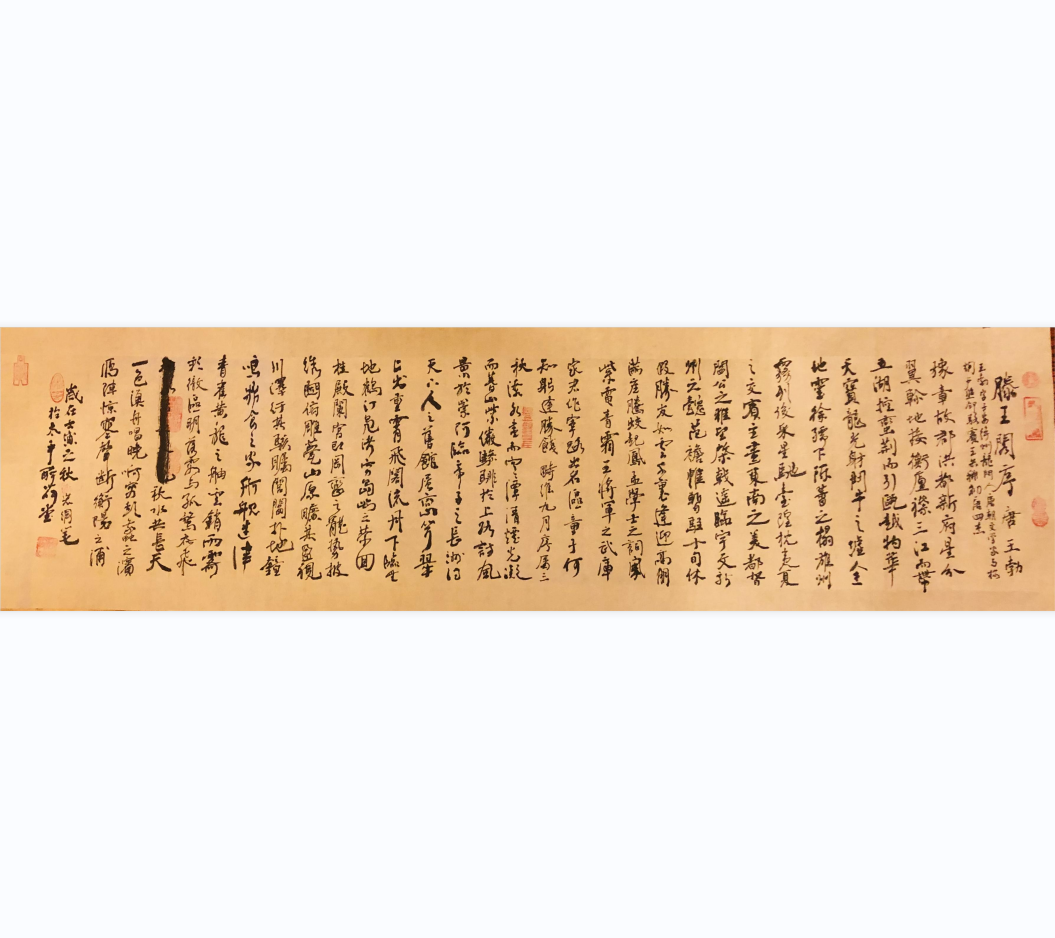 滕王閣序 唐 王勃
王勃字子安絳州龍門人唐朝文學家与楊
炯盧照鄰駱賓王共稱初唐四杰
豫章故郡洪都新府星分
翼軫地接衡廬襟三江而帶
五湖控蠻荊而引甌越物華
天寶龍光射斗牛之墟人杰
地靈徐孺下陳蕃之榻雄州
霧列俊采星馳臺隍枕夷夏
之交賓主盡東南之美都督
閻公之雅望棨戟遙臨宇文新
州之懿范襜帷暫駐十旬休
假勝友如雲千里逢迎高朋
滿座騰蛟起鳳孟學士之詞宗
紫電青霜王將軍之武庫
家君作宰路出名區童子何
知躬逢勝餞時維九月序屬三
秋潦水盡而寒潭清煙光凝
而暮山紫儼驂騑於上路訪風
景於崇阿臨帝子之長洲得
天人之舊館層巒聳翠
上出重霄飛閣流丹下臨無
地鶴汀鳧渚窮島嶼之縈回
桂殿蘭宮即岡巒之體勢披
繡闥俯雕甍山原曠其盈視
川澤紆其駭矚閭閻撲地鐘
鳴鼎食之家舸艦迷津
青雀黃龍之舳雲銷雨霽
彩徹區明落霞与孤鶩齊飛
秋水共長天
一色漁舟唱晚響窮彭蠡之濱
雁陣驚寒聲斷衡陽之浦
歲在之秋